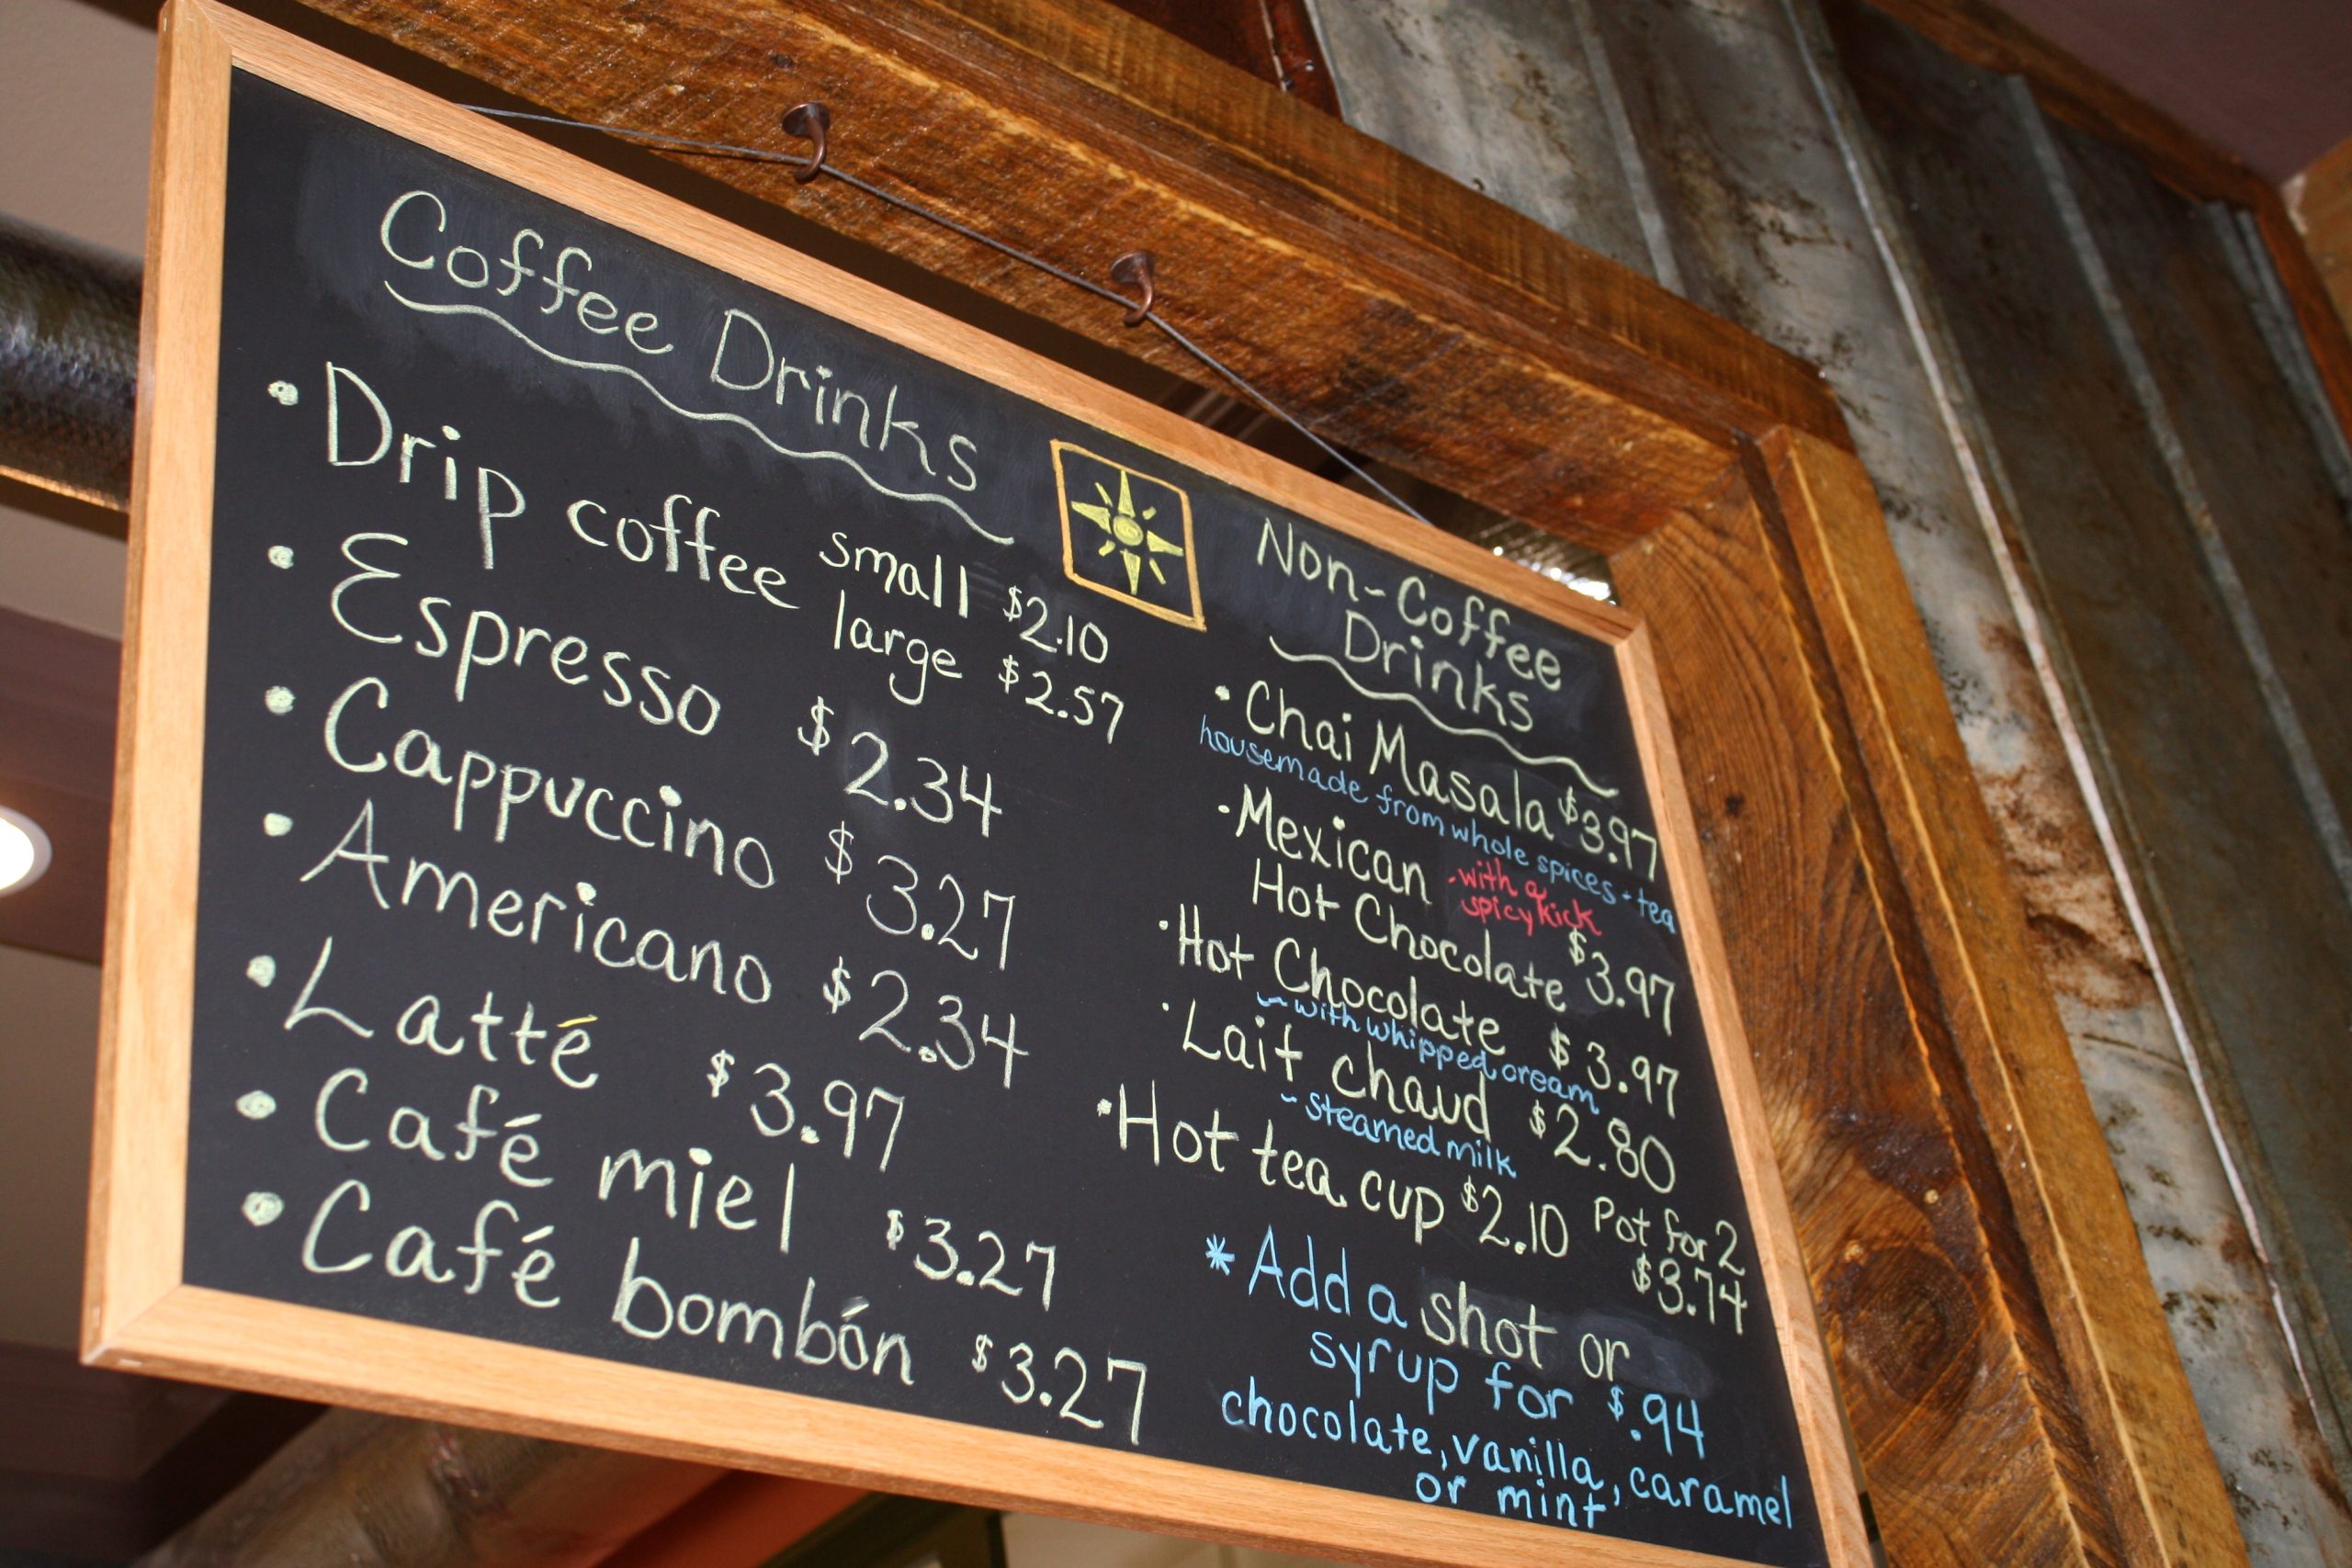 Coffee Drinks
• Drip coffee small $2.10
large $2.57
• Espresso $2.34
• Cappuccino $3.27
• Americano $2.34
• Latté $3.97
• Café miel $3.27
• Café bombón $3.27
Non-Coffee
Drinks
• Chai Masala $3.97
housemade from whole spices + tea
• Mexican - with a
spicy kick
Hot Chocolate $3.97
• Hot Chocolate $3.97
~ with whipped cream
• Lait chaud $2.80
~ steamed milk
• Hot tea cup $2.10 Pot for 2
$3.74
* Add a shot or
syrup for $.94
chocolate, vanilla, caramel
or mint